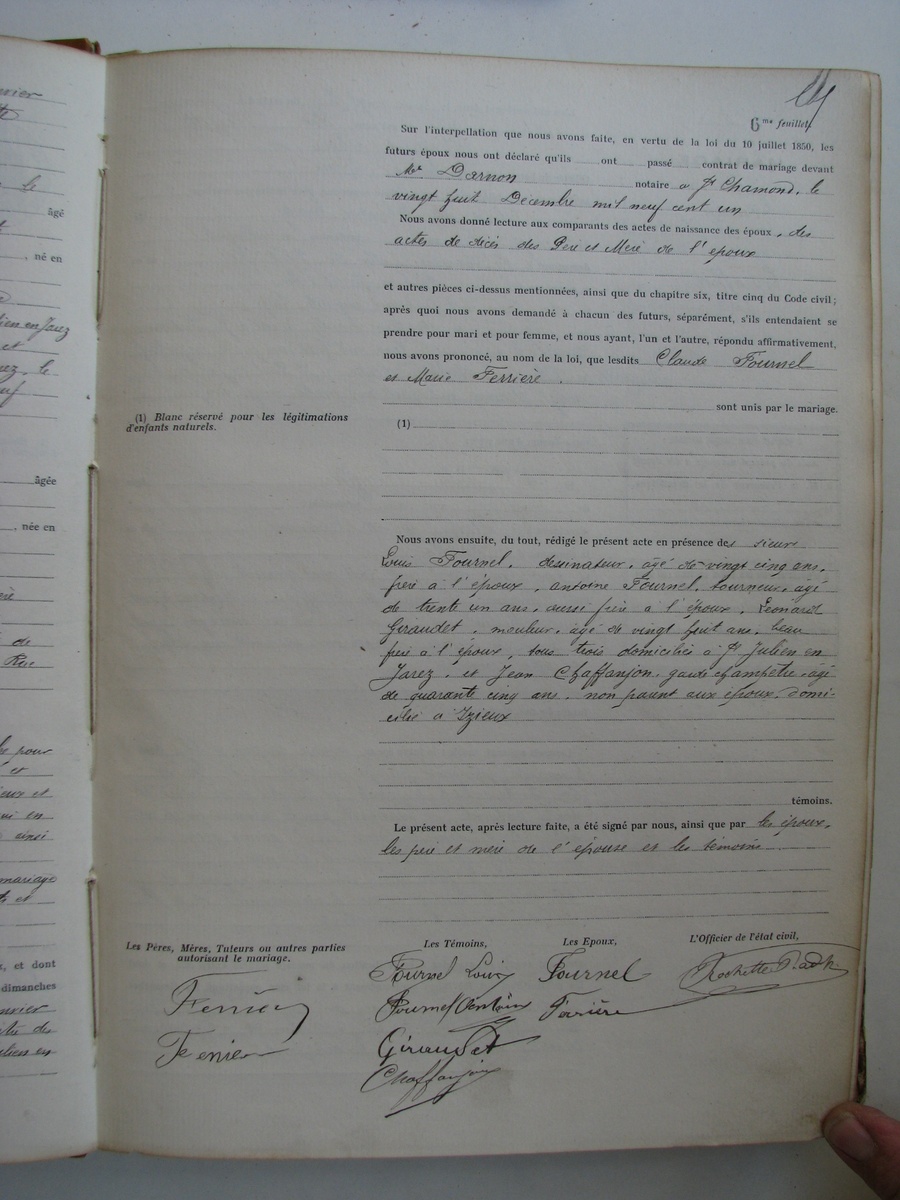 6me feuillet
Sur l'interpellation que nous avons faite, en vertu de la loi du 10 juillet 1850, les
futurs époux nous ont déclaré qu'ils ont passé contrat de mariage devant
Me Darnon notaire à St Chamond, le
vingt huit Décembre mil neuf cent un
Nous avons donné lecture aux comparants des actes de naissance des époux, des
actes de décès des Père et Mère de l'époux
et autres pièces ci-dessus mentionnées, ainsi que du chapitre six, titre cinq du Code civil;
après quoi nous avons demandé à chacun des futurs, séparément, s'ils entendaient se
prendre pour mari et pour femme, et nous ayant, l'un et l'autre, répondu affirmativement,
nous avons prononcé, au nom de la loi, que lesdits Claude Fournel
et Marie Ferrière.
sont unis par le mariage.
(1) Blanc réservé pour les légitimations
d'enfants naturels.
(1)
Nous avons ensuite, du tout, rédigé le présent acte en présence des sieurs
Louis Fournel, dessinateur, âgé de vingt cinq ans,
frère à l'époux, antoine Fournel, tourneur, âgé
de trente un ans, aussi frère à l'époux, Léonard
Giraudet, mouleur, âgé de vingt huit ans, beau
frère à l'époux, tous trois domiciliés à St Julien en
Jarez, et Jean Chaffanjon, garde champêtre, âgé
de quarante cinq ans, non parent aux époux, domi-
cilié à Izieux
témoins.
Le présent acte, après lecture faite, a été signé par nous, ainsi que par les époux,
les père et mère de l'épouse et les témoins
Les Pères, Mères, Tuteurs ou autres parties
autorisant le mariage.
Les Témoins,
Les Epoux,
L'Officier de l'état civil,
Fournel Louis
Fournel
Fournel Antoine
Ferrière
Giraudet
Chaffanjon